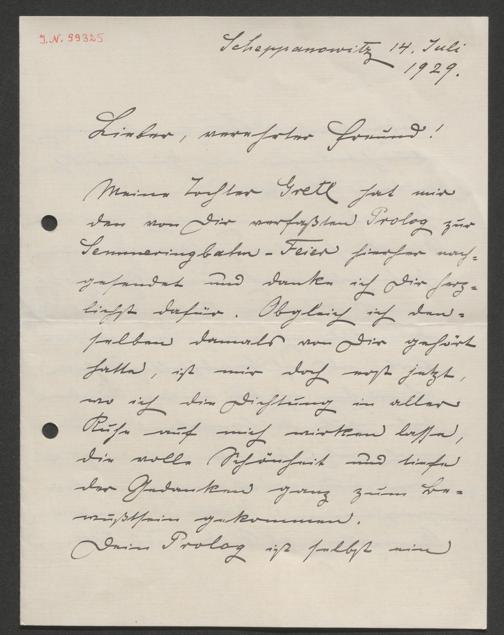 J.N. 99325
Scheppanowitz 14. Juli
1929.
Lieber, verehrter Freund!
Meine Tochter Gretl hat mir
den von Dir verfaßten Prolog zur
Semmeringbahn-Feier hierher nach-
gesendet und danke ich Dir herz-
lichst dafür. Obgleich ich den-
selben damals von Dir gehört
hatte, ist mir doch erst jetzt,
wo ich die Dichtung in aller
Ruhe auf mich wirken lasse,
die volle Schönheit und tiefe
der Gedanken ganz zum Be-
wußtsein gekommen.
Dein Prolog ist selbst ein